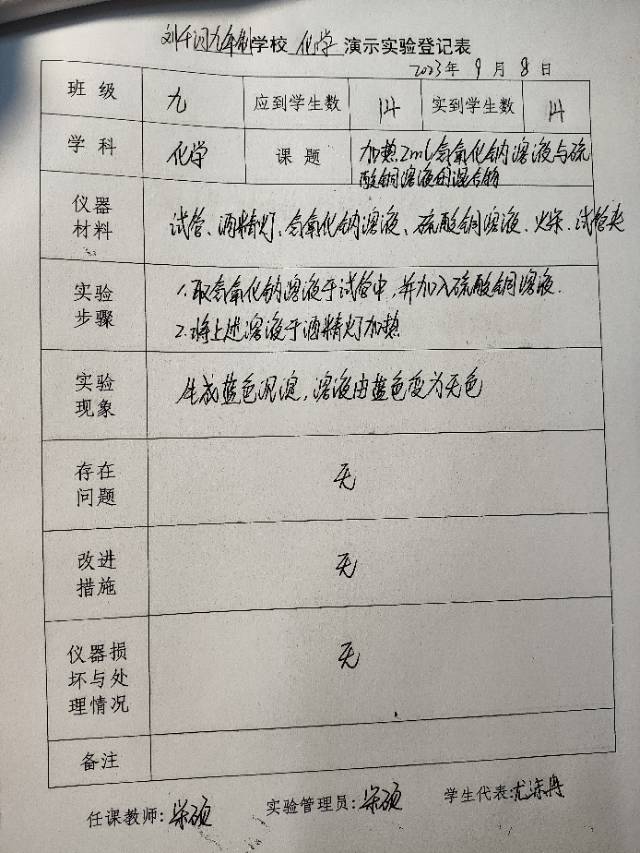 九年制学校 化学 演示实验登记表
2023年 9 月 8 日
班 级 九 应到学生数 14 实到学生数 14
学 科 化学 课 题 加热2ml氢氧化钠溶液与硫
酸铜溶液的混合物
仪器
材料
试管、酒精灯、氢氧化钠溶液、硫酸铜溶液、火柴、试管夹
实验
步骤
1.取氢氧化钠溶液于试管中,并加入硫酸铜溶液.
2.将上述溶液于酒精灯加热
实验
现象
生成蓝色沉淀,溶液由蓝色变为无色
存在
问题
无
改进
措施
无
仪器损
坏与处
理情况
无
备注
任课教师: 实验管理员: 学生代表: